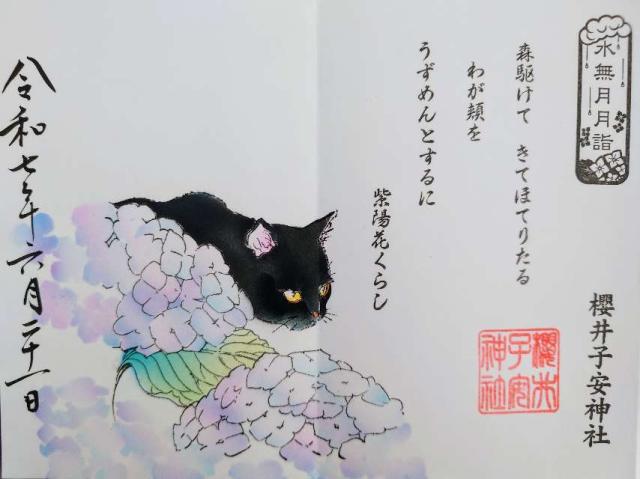 水無月月詣
森駆けて きてほてりたる
わが頬を
うずめんとするに
紫陽花くらし
櫻井子安神社
櫻井子安神社
令和七年六月二十一日